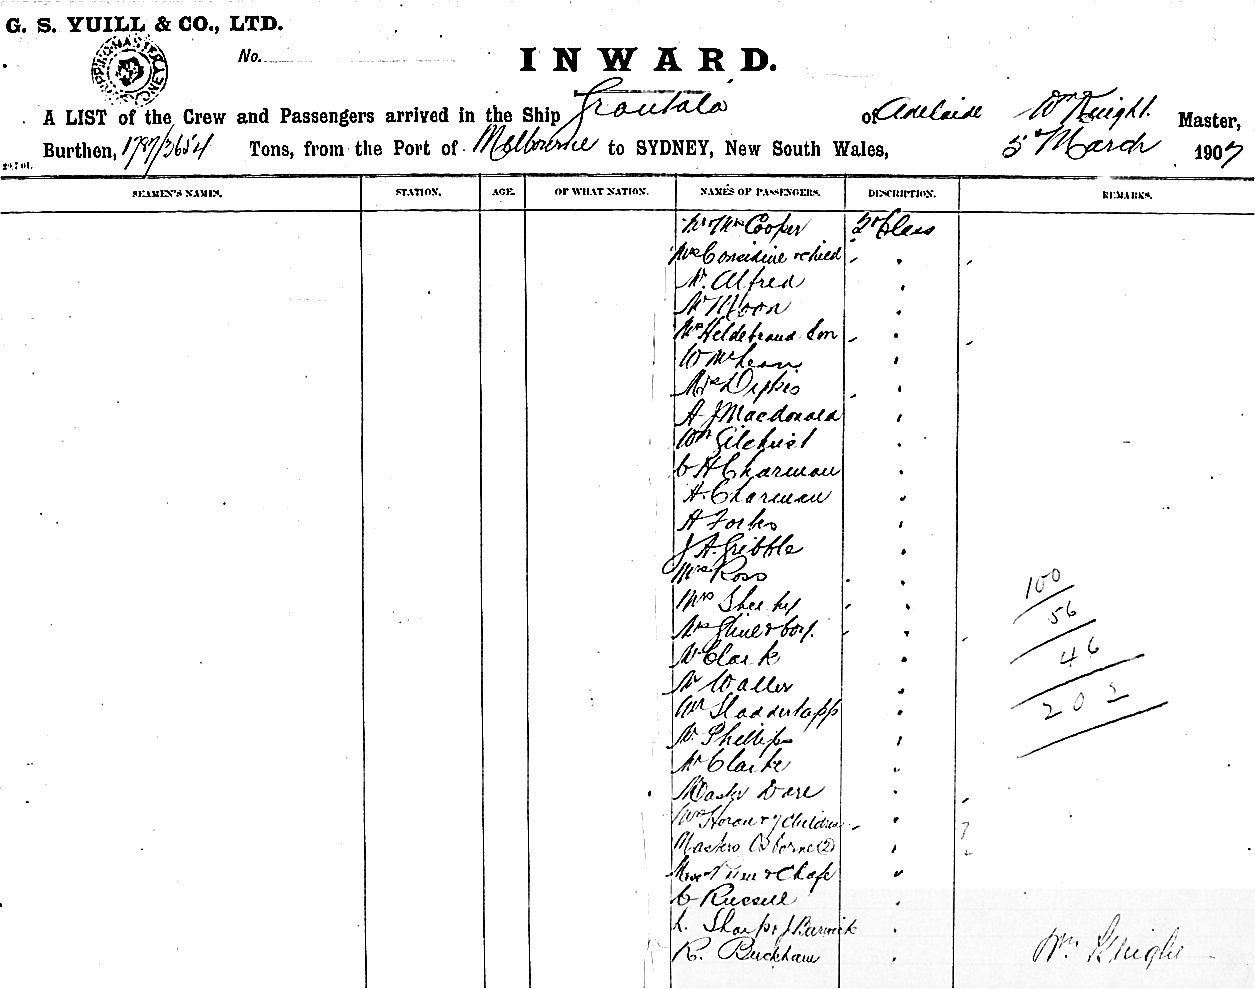 G. S. YUILL & CO., LTD.
No.
INWARD.
A LIST of the Crew and Passengers arrived in the Ship Grantala of Adelaide Wm Knight. Master,
Burthen, 1787/3654 Tons, from the Port of Melbourne to SYDNEY, New South Wales, 5th March 1907
SEAMEN'S NAMES. STATION. AGE. OF WHAT NATION. NAMES OF PASSENGERS. DESCRIPTION. REMARKS.
Mr & Mrs Cooper 2nd Class
Mrs Considine & child
Mr. Alfred
Mr Moon
Mrs Heldebrand Son
W McLean
Mrs
A. J Macdonald
Wm Gilchrist
C H Charman
A. Charman
A Forbes
J A. Gribble
Mrs Ross
100
Mrs Sheehy
56
& boy.
Mr Clark
46
Mr Waller
202
Mr
Mr. Phillips
Mr Clarke
Master Dare
Mrs Horan & 7 Children
Masters Osborne (2)
C Russell
L. Sharp & J Barwick
R. Buckham
Wm Knight